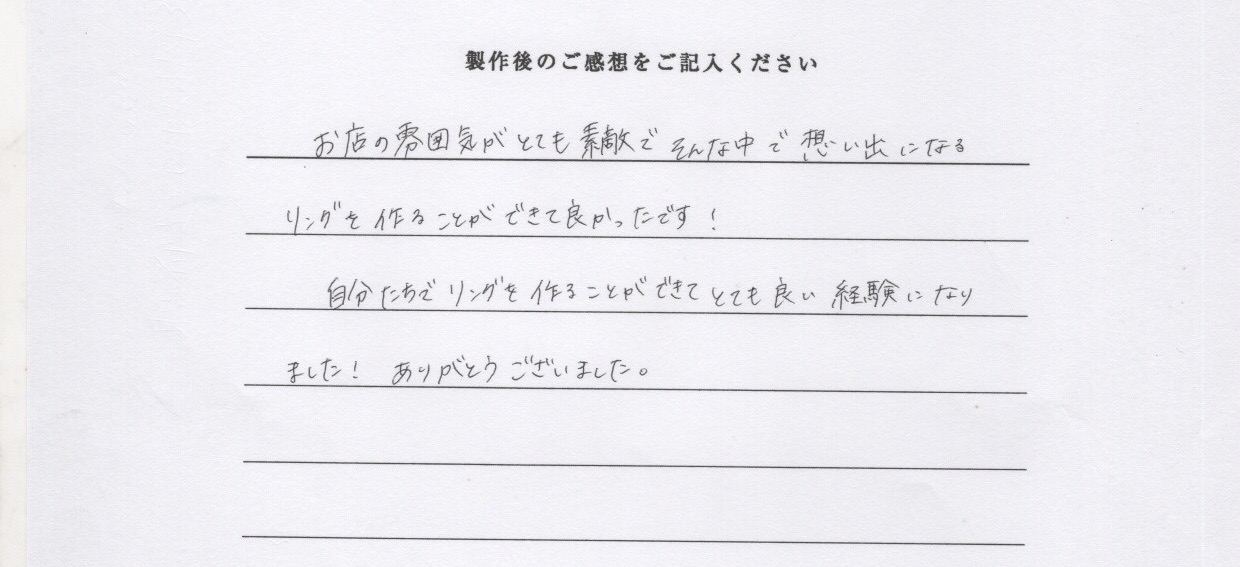 製作後のご感想をご記入ください
お店の雰囲気がとても素敵でそんな中で想い出になる
リングを作ることができて良かったです！
自分たちでリングを作ることができてとても良い経験になり
ました！ ありがとうございました。